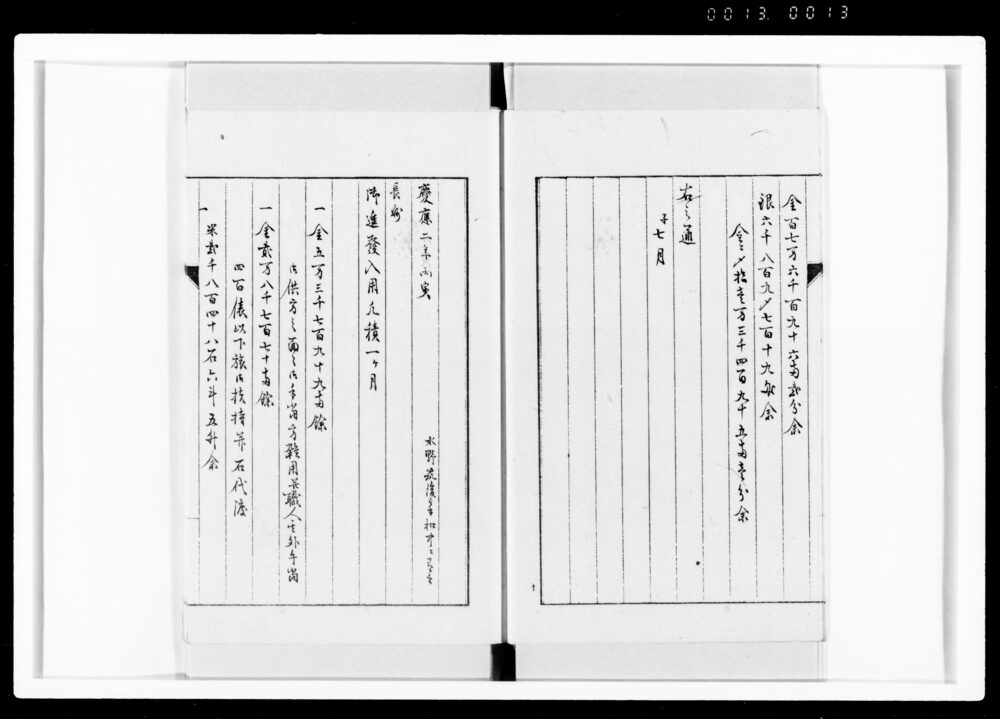 0013. 0013
金百七万六千百九十六両弐分余
銀六千八百九〆七百十九匁余
金〆拾壱万三千四百九十五両壱分余
右之通
子七月
慶應二年丙寅
水野筑後守
長州
御進發入用凡積一ヶ月
一金五万三千七百九十九両餘
御供方之面々御手當方雑用并職人其外手當
一金貳万八千七百七十両餘
四百俵以下旅御扶持并石代渡
一米貳千八百四十八石六斗五升余